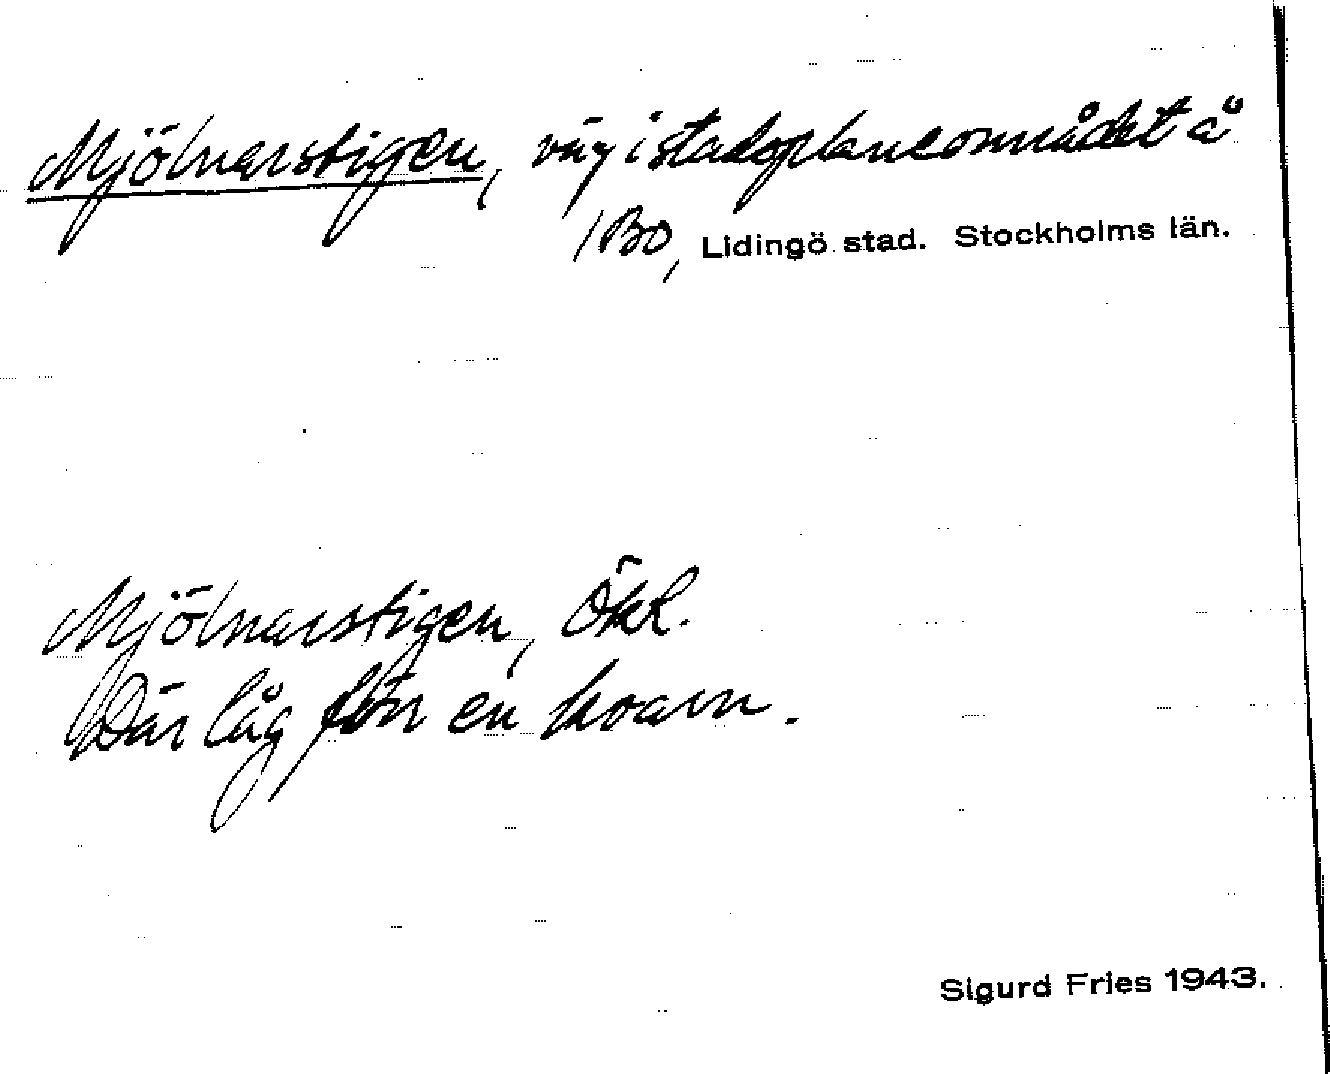 Mjölnarstigen, väg i stadsplaneområdet å
/Bo, Lidingö stad. Stockholms län.
Mjölnarstigen, ÖKL.
Där låg förr en kvarn.
Sigurd Fries 1943.